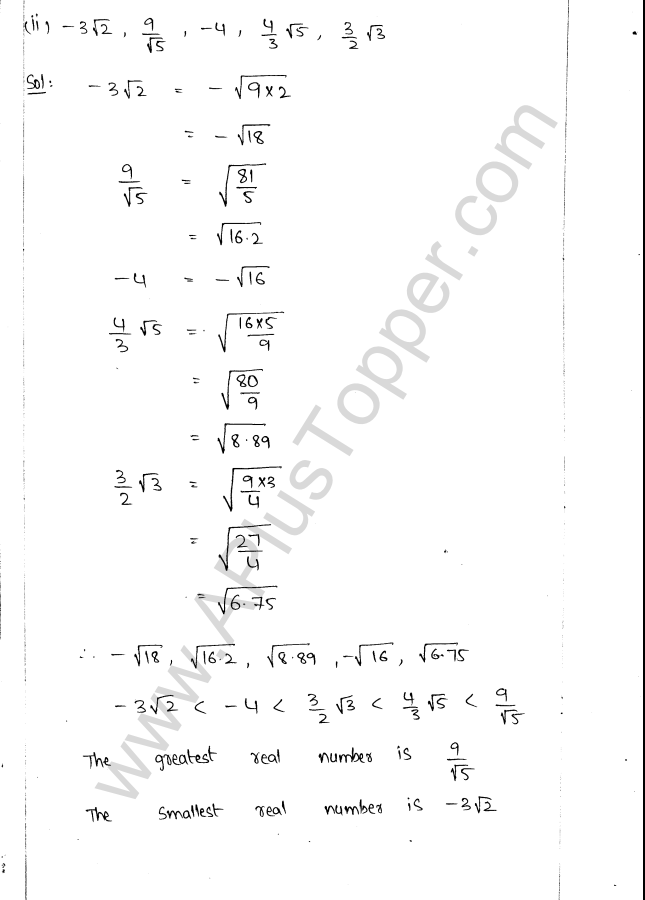 (ii) -3√2 , 9/√5 , -4 , 4/3 √5 , 3/2 √3
Sol: -3√2 = -√(9×2)
= -√18
9/√5 = √(81/5)
= √16.2
-4 = -√16
4/3 √5 = √(16×5/9)
= √(80/9)
= √8.89
3/2 √3 = √(9×3/4)
= √(27/4)
= √6.75
∴ -√18 , √16.2 , √8.89 , -√16 , √6.75
-3√2 < -4 < 3/2 √3 < 4/3 √5 < 9/√5
The greatest real number is 9/√5
The smallest real number is -3√2
www.APlusTopper.com